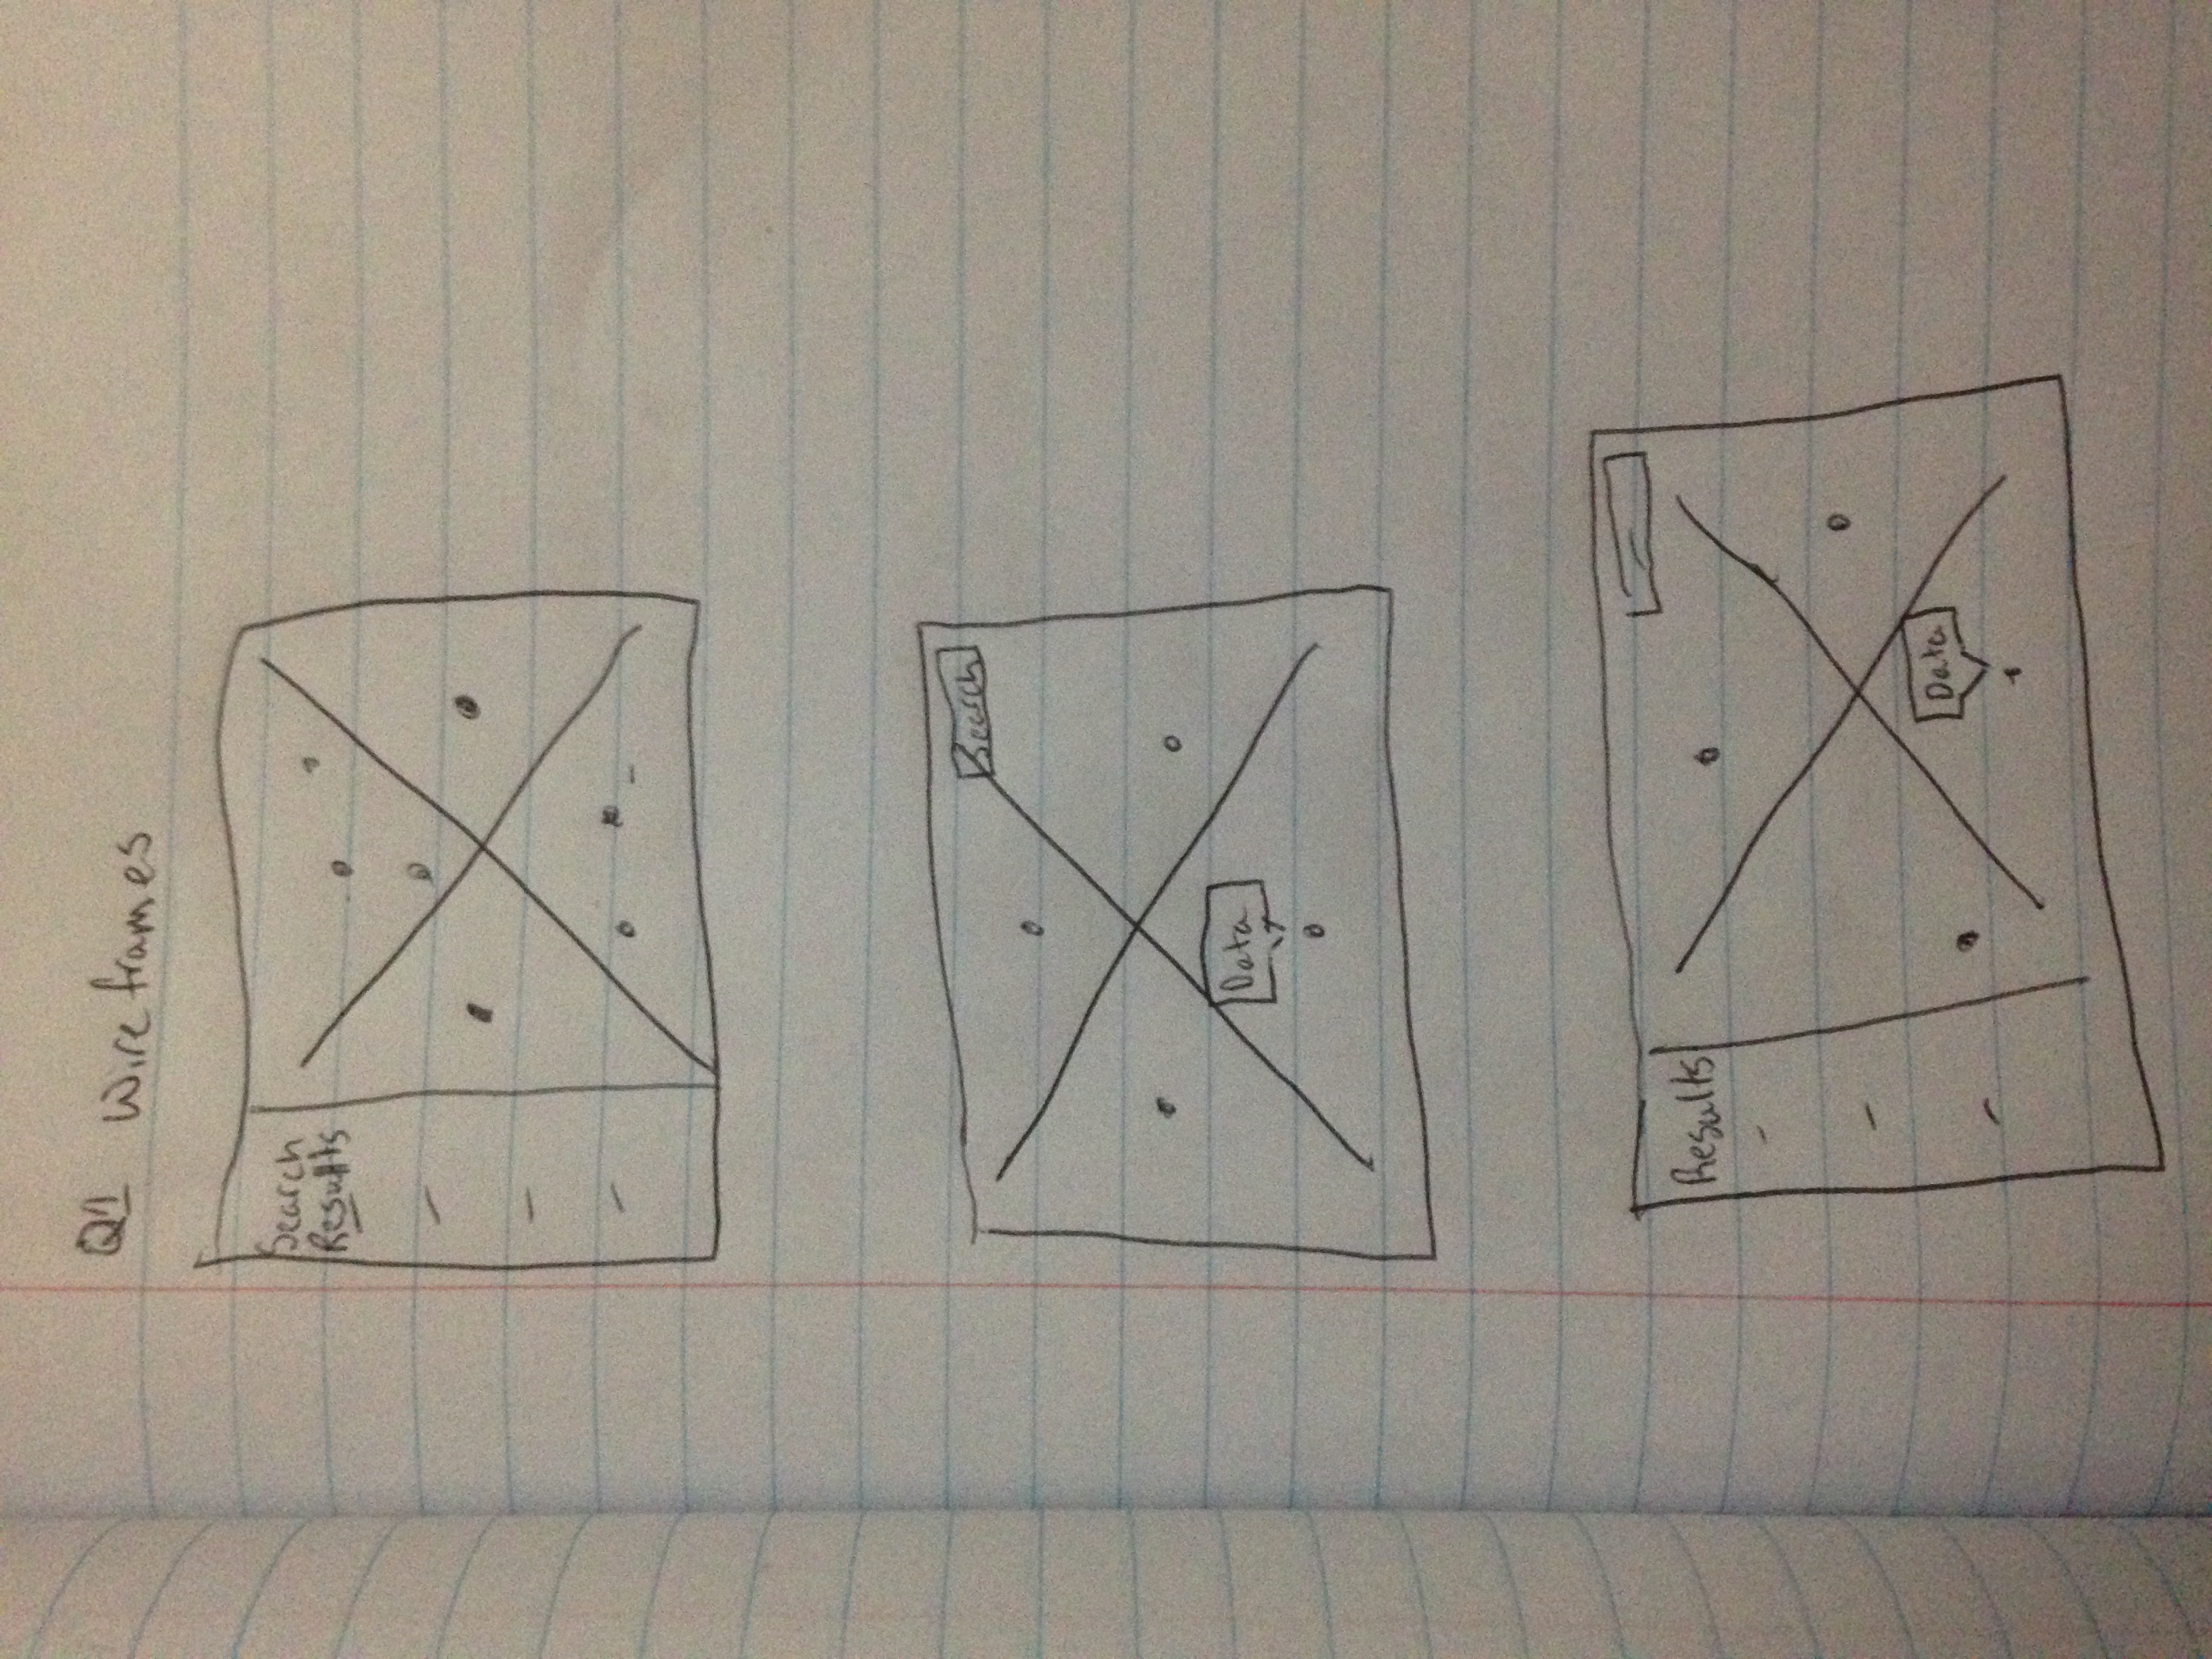 Q1 Wireframes
Search
Results
Search
Data
Results
Data